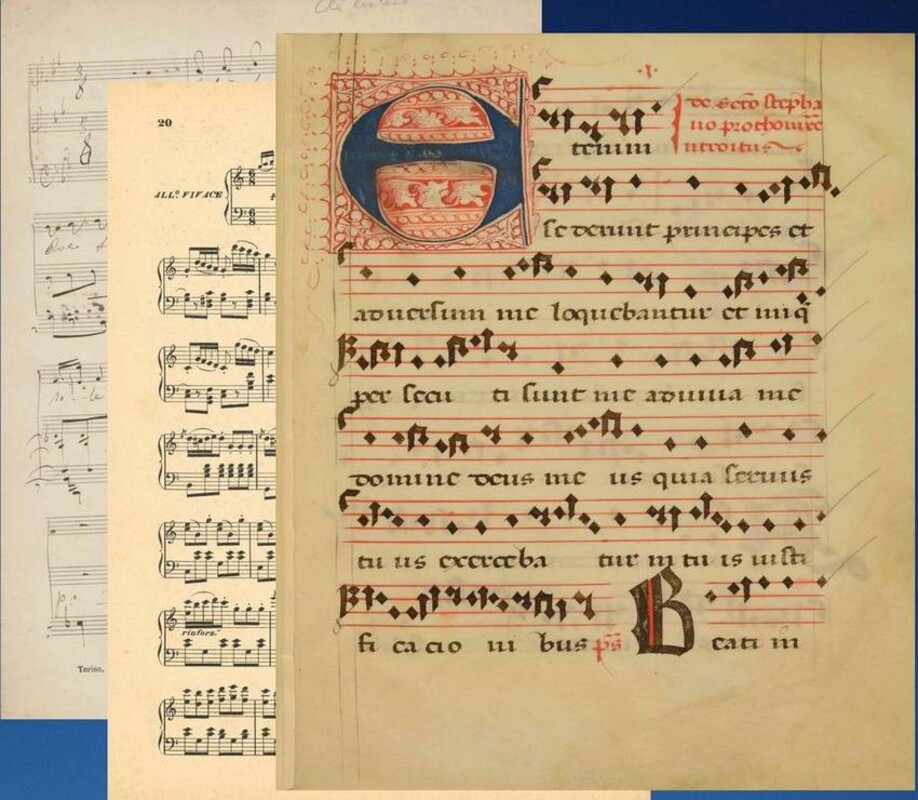 20
ALLº. VIVACE
rinforz.
Torino,
E tenim
de scto stepha
no prothom̄re
introitus
se derunt principes et
aduersum me loquebantur et iniq̄
per secu ti sunt me adiuua me
domine deus me us quia seruus
tu us exerceba tur in tu is iusti
fi ca cio ni bus ps B eati in